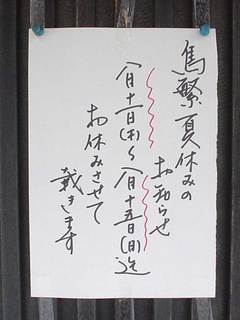 馬繁 夏休みの
お知らせ
八月十一日(木)〜八月十五日(日)迄
お休みさせて
戴きます